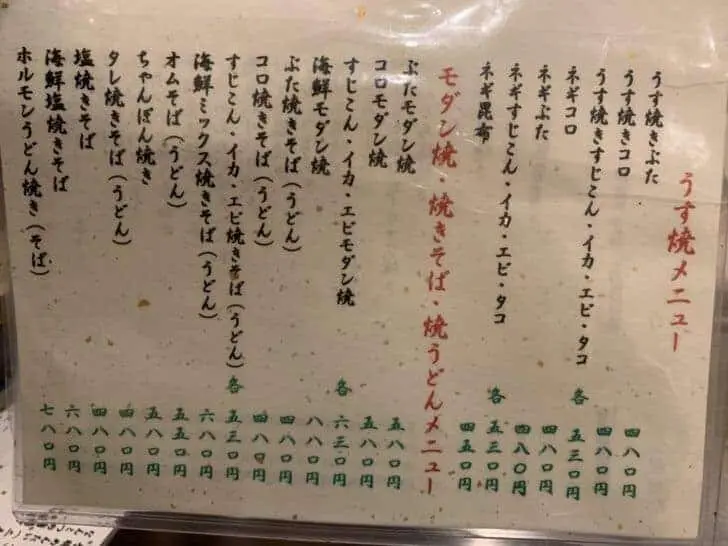 うす焼メニュー
うす焼きぶた 四八〇円
うす焼きコロ 四八〇円
うす焼きすじこん・イカ・エビ・タコ 各 五三〇円
ネギコロ 四八〇円
ネギぶた 四八〇円
ネギすじこん・イカ・エビ・タコ 各 五三〇円
ネギ昆布 四五〇円
モダン焼・焼きそば・焼うどんメニュー
ぶたモダン焼 五八〇円
コロモダン焼 五八〇円
すじこん・イカ・エビモダン焼 各 六三〇円
海鮮モダン焼 八八〇円
ぶた焼きそば(うどん) 四八〇円
コロ焼きそば(うどん) 四八〇円
すじこん・イカ・エビ焼きそば(うどん) 各 五三〇円
海鮮ミックス焼きそば(うどん) 六八〇円
オムそば(うどん) 五五〇円
ちゃんぽん焼き 五八〇円
タレ焼きそば(うどん) 四八〇円
塩焼きそば 四八〇円
海鮮塩焼きそば 六八〇円
ホルモンうどん焼き(そば) 七八〇円